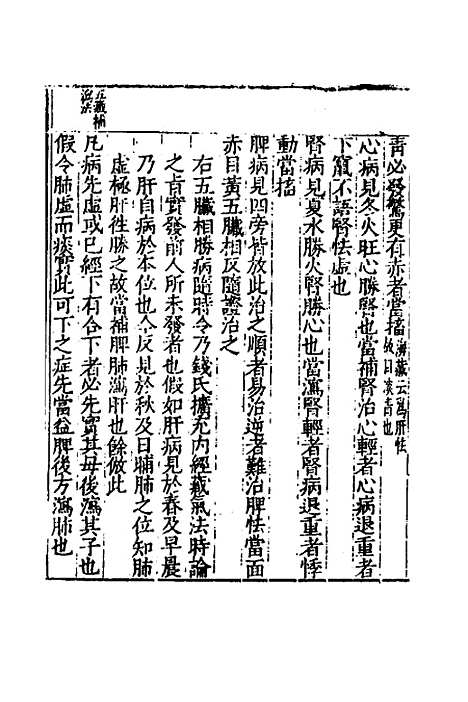 青必發驚更有赤者當搐海藏云爲肝怯故目淡青也
心病見冬火旺心勝腎也當補腎治心輕者心病退重者
下竄不語腎怯虛也
腎病見夏水勝火腎勝心也當瀉腎輕者腎病退重者悸
動當搐
脾病見四旁皆放此治之順者易治逆者難治脾怯當面
赤目黃五臟相反隨證治之
右五臟相勝病臨時令乃錢氏擴充內經藏氣法時論
之旨實發前人所未發者也假如肝病見於春及早晨
乃肝自病於本位也今反見於秋及日晡肺之位知肺
虛極肝徃勝之故當補脾肺瀉肝也餘倣此
五藏補瀉法
凡病先虛或已經下有合下者必先實其母後瀉其子也
假令肺虛而痰實此可下之症先當益脾後方瀉肺也